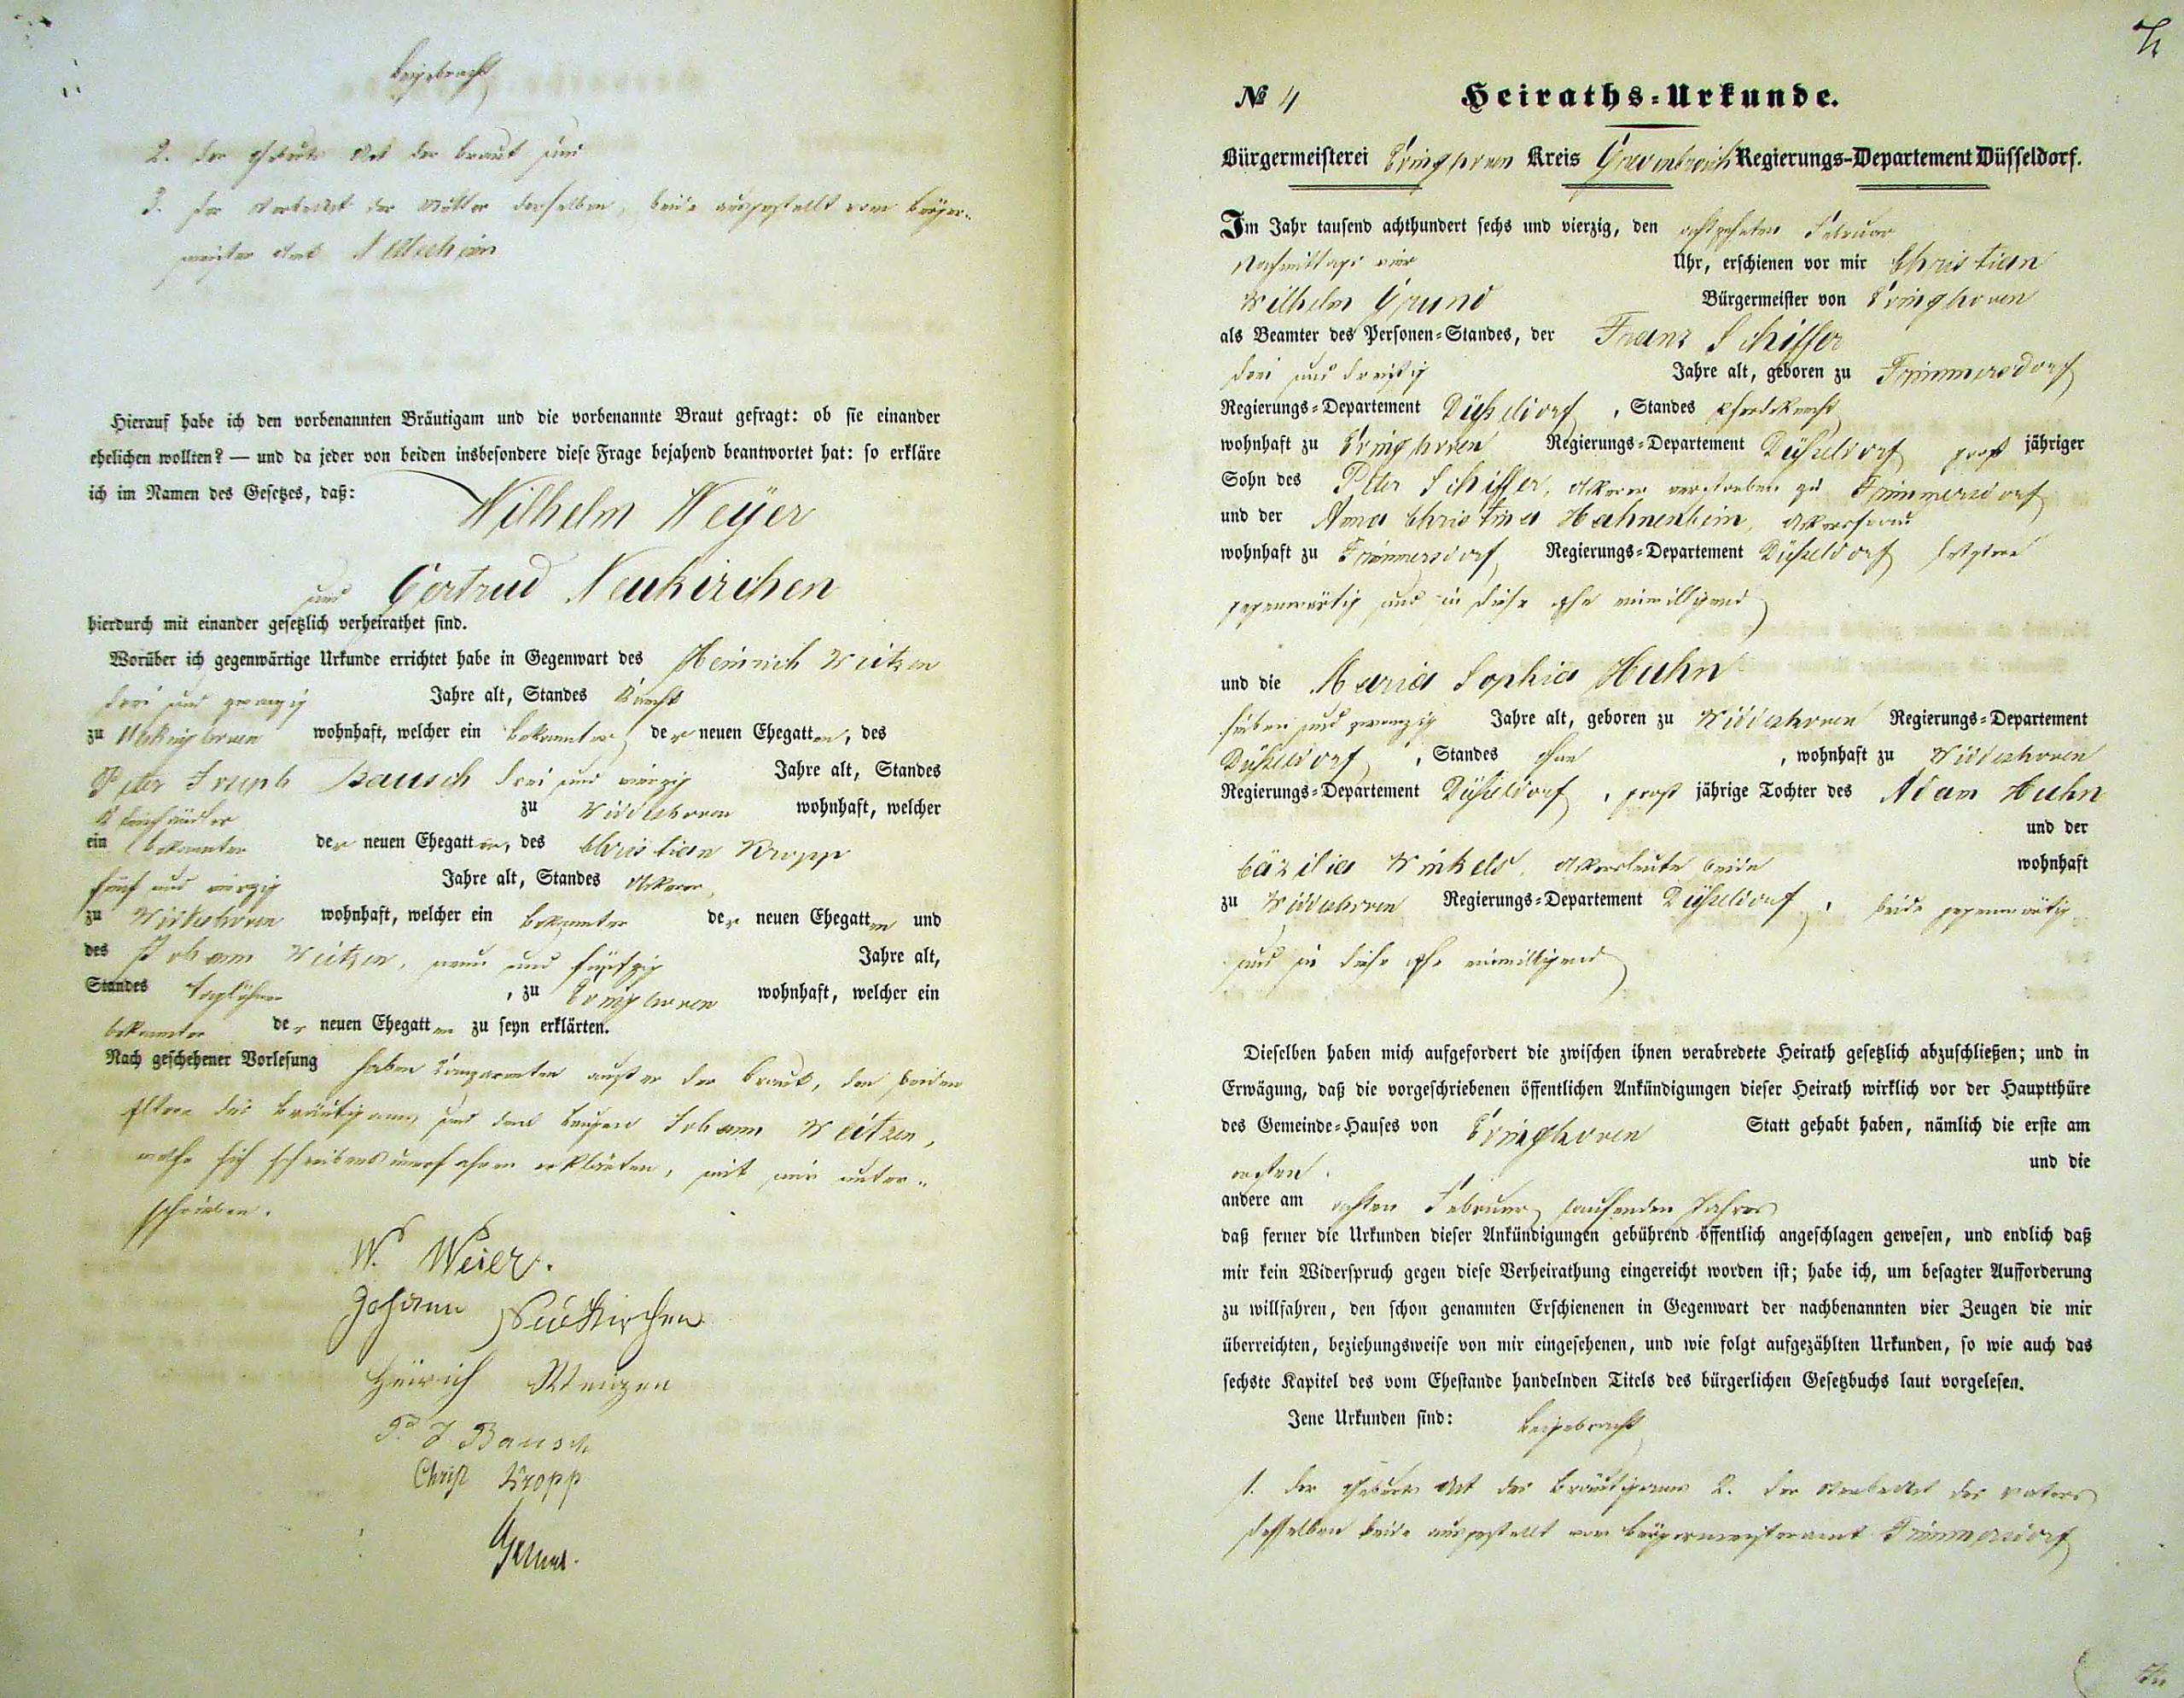 beigebracht
2. der Geburts Act der Braut und
3. der Sterbeact der Mutter derselben, beide ausgestellt vom Bürger-
meister Amt
Hierauf habe ich den vorbenannten Bräutigam und die vorbenannte Braut gefragt: ob sie einander
ehelichen wollten? — und da jeder von beiden insbesondere diese Frage bejahend beantwortet hat: so erkläre
ich im Namen des Gesetzes, daß:
Wilhelm Weÿer
und Gertrud Neukirchen
hierdurch mit einander gesetzlich verheirathet sind.
Worüber ich gegenwärtige Urkunde errichtet habe in Gegenwart des Heinrich Weitzen
drei und zwanzig Jahre alt, Standes Knecht
zu wohnhaft, welcher ein Bekannter der neuen Ehegatten, des
Peter Joseph Bausch drei und vierzig Jahre alt, Standes
zu wohnhaft, welcher
ein Bekannter der neuen Ehegatten, des Christian Kropp
fünf und vierzig Jahre alt, Standes Ackerer
zu wohnhaft, welcher ein Bekannter der neuen Ehegatten und
des Johann Weitzen, neun und fünfzig Jahre alt,
Standes Taglöhner, zu Evinghoven wohnhaft, welcher ein
Bekannter der neuen Ehegatten zu seyn erklärten.
Nach geschehener Vorlesung haben Comparenten außer der Braut, den beiden
Eltern des Bräutigams und dem Zeugen Johann Weitzen,
welche sich schreibensunerfahren erklärten, mit mir unter-
schrieben.
W. Weier.
Johann Neukirchen
Heinrich Weitzen
P. J Bausch
Christ Kropp
Grund.
№ 4 Heiraths-Urkunde.
Bürgermeisterei Evinghoven Kreis Grevenbroich Regierungs-Departement Düsseldorf.
Im Jahr tausend achthundert sechs und vierzig, den achtzehnten Februar
Nachmittags vier Uhr, erschienen vor mir Christian
Wilhelm Grund Bürgermeister von Evinghoven
als Beamter des Personen-Standes, der Franz Schiffer
drei und dreißig Jahre alt, geboren zu Frimmersdorf
Regierungs-Departement Düsseldorf, Standes Pferdeknecht
wohnhaft zu Evinghoven Regierungs-Departement Düsseldorf groß jähriger
Sohn des Peter Schiffer, Ackerer verstorben zu Frimmersdorf
und der Anna Christina Hahnenbein, Ackersfrau
wohnhaft zu Frimmersdorf Regierungs-Departement Düsseldorf letztere
gegenwärtig und in diese Ehe einwilligend
und die Maria Sophia Huhn
sieben und zwanzig Jahre alt, geboren zu Widdeshoven Regierungs-Departement
Düsseldorf, Standes ohne, wohnhaft zu Widdeshoven
Regierungs-Departement Düsseldorf, groß jährige Tochter des Adam Huhn
und der
Cäzilia Winkels, Ackersleute beide wohnhaft
zu Widdeshoven Regierungs-Departement Düsseldorf, beide gegenwärtig
und in diese Ehe einwilligend
Dieselben haben mich aufgefordert die zwischen ihnen verabredete Heirath gesetzlich abzuschließen; und in
Erwägung, daß die vorgeschriebenen öffentlichen Ankündigungen dieser Heirath wirklich vor der Hauptthüre
des Gemeinde-Hauses von Evinghoven Statt gehabt haben, nämlich die erste am
ersten und die
andere am achten Februar laufenden Jahres
daß ferner die Urkunden dieser Ankündigungen gebührend öffentlich angeschlagen gewesen, und endlich daß
mir kein Widerspruch gegen diese Verheirathung eingereicht worden ist; habe ich, um besagter Aufforderung
zu willfahren, den schon genannten Erschienenen in Gegenwart der nachbenannten vier Zeugen die mir
überreichten, beziehungsweise von mir eingesehenen, und wie folgt aufgezählten Urkunden, so wie auch das
sechste Kapitel des vom Ehestande handelnden Titels des bürgerlichen Gesetzbuchs laut vorgelesen.
Jene Urkunden sind: beigebracht
1. der Geburts Act des Bräutigams 2. der Sterbeact des Vaters
desselben beide ausgestellt vom Bürgermeisteramt Frimmersdorf